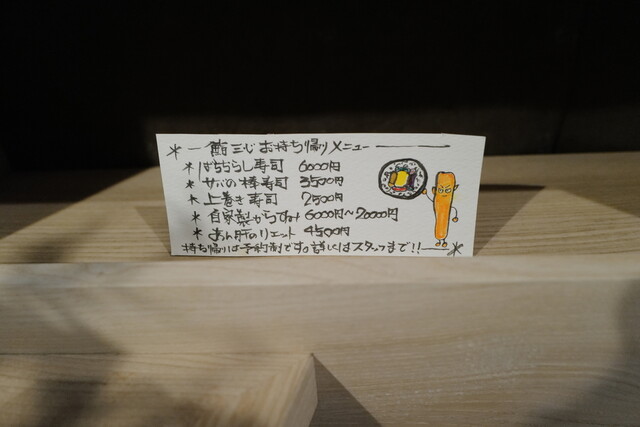 * 一 鮨三心 お持ち帰りメニュー
* ばらちらし寿司 6000円
* サバの棒寿司 3500円
* 上巻き寿司 2500円
* 自家製からすみ 6000円~20000円
* あん肝のリエット 4500円
持ち帰りは予約制です。詳しくはスタッフまで!! *